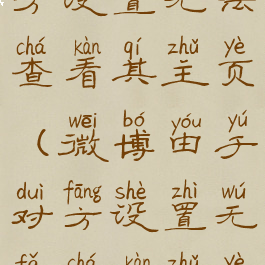 方设置无法
chá kàn qí zhǔ yè
查看其主页
wēi bó yóu yú
（微博由于
duì fāng shè zhì wú
对方设置无
fǎ chá kàn zhǔ yè